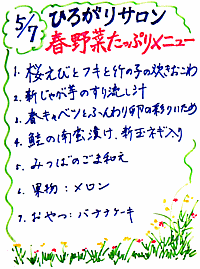 5/7
ひろがりサロン
春野菜たっぷりメニュー
1. 桜えびとフキと竹の子の炊きおこわ
2. 新じゃが芋のすり流し汁
3. 春キャベツとふんわり卵の彩りいため
4. 鮭の南蛮漬け、新玉ネギ入り
5. みつばのごま和え
6. 果物：メロン
7. おやつ：バナナケーキ